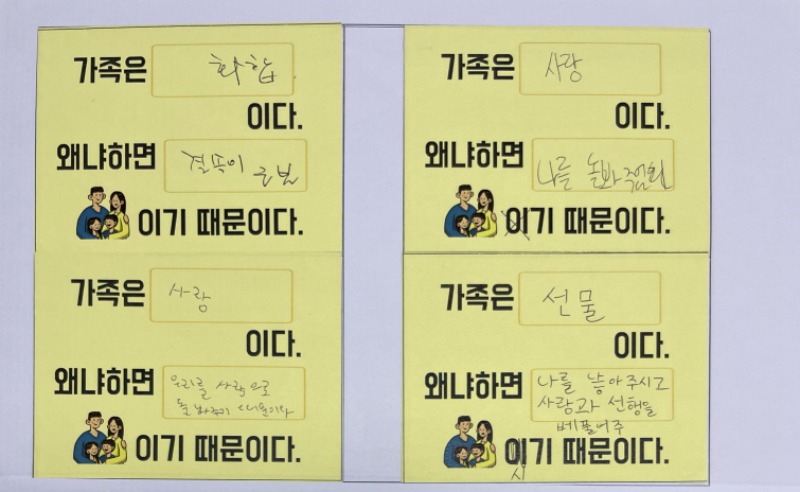 가족은 화합
이다.
왜냐하면 결속이 근본
이기 때문이다.
가족은 사랑
이다.
왜냐하면 나를 돌봐주
이기 때문이다.
가족은 사랑
이다.
왜냐하면 우리를 사랑으로
돌봐주기 때문이다
이기 때문이다.
가족은 선물
이다.
왜냐하면 나를 낳아주시고
사랑과 선행을
베풀어주
시기 때문이다.